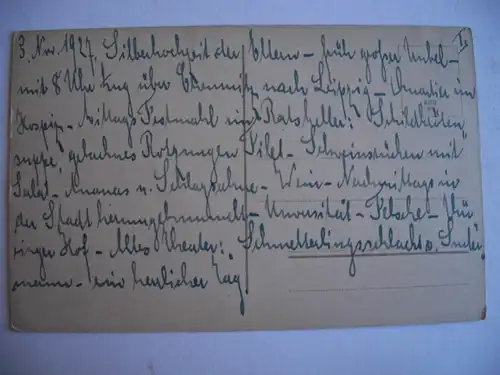 3. Nov. 1927. Silberhochzeit der Eltern – früh großer Jubel –
mit 8 Uhr Zug über Chemnitz nach Leipzig – Quartier im
Hospiz – Mittags Festmahl im Ratskeller: "Schildkröten
suppe, gebackenes Rotzungen Filet – Schweinsrücken mit
Salat – Ananas u. Schlagsahne – Wein – Nachmittags in
der Stadt herumgebummelt – Universität – Felsche – Thü
ringer Hof – Altes Theater: "Schmetterlingsschlacht v. Suder
mann – ein herrlicher Tag
I.